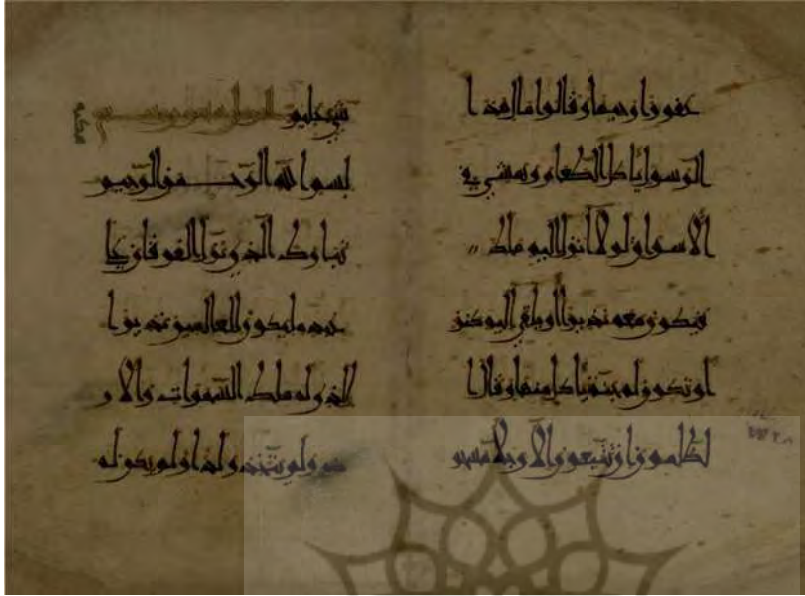 غفورا رحيما وقالوا مال هذا
الرسول يأكل الطعام ويمشي في
الأسواق لولا أنزل إليه ملك
فيكون معه نذيرا أو يلقى إليه كنز
أو تكون له جنة يأكل منها وقال ا
لظلمون إن تتبعون إلا رجلا مسحو
شيء عليم
بسم الله الرحمن الرحيم
تبارك الذي نزل الفرقان على
عبده ليكون للعالمين نذيرا
الذي له ملك السموات والأر
ض ولم يتخذ ولدا ولم يكن له